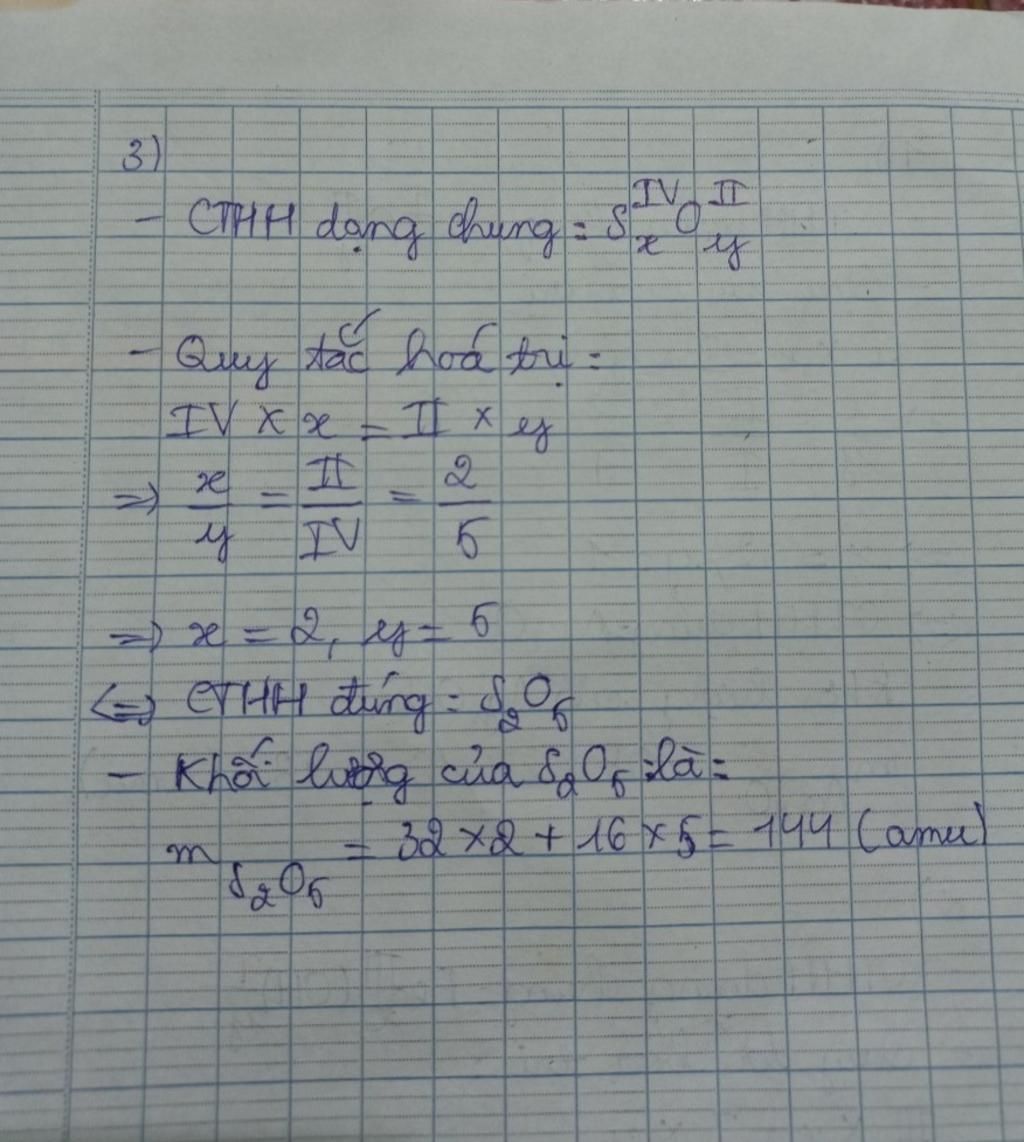 3)
- CTHH dạng chung = S IV x O II y
- Quy tắc hoá trị =
IV × x = II × y
=> x/y = II/IV = 2/5
=> x = 2, y = 5
<=> CTHH đúng = S₂O₅
- Khối lượng của S₂O₅ là =
m S₂O₅ = 32 × 2 + 16 × 5 = 144 (amu)